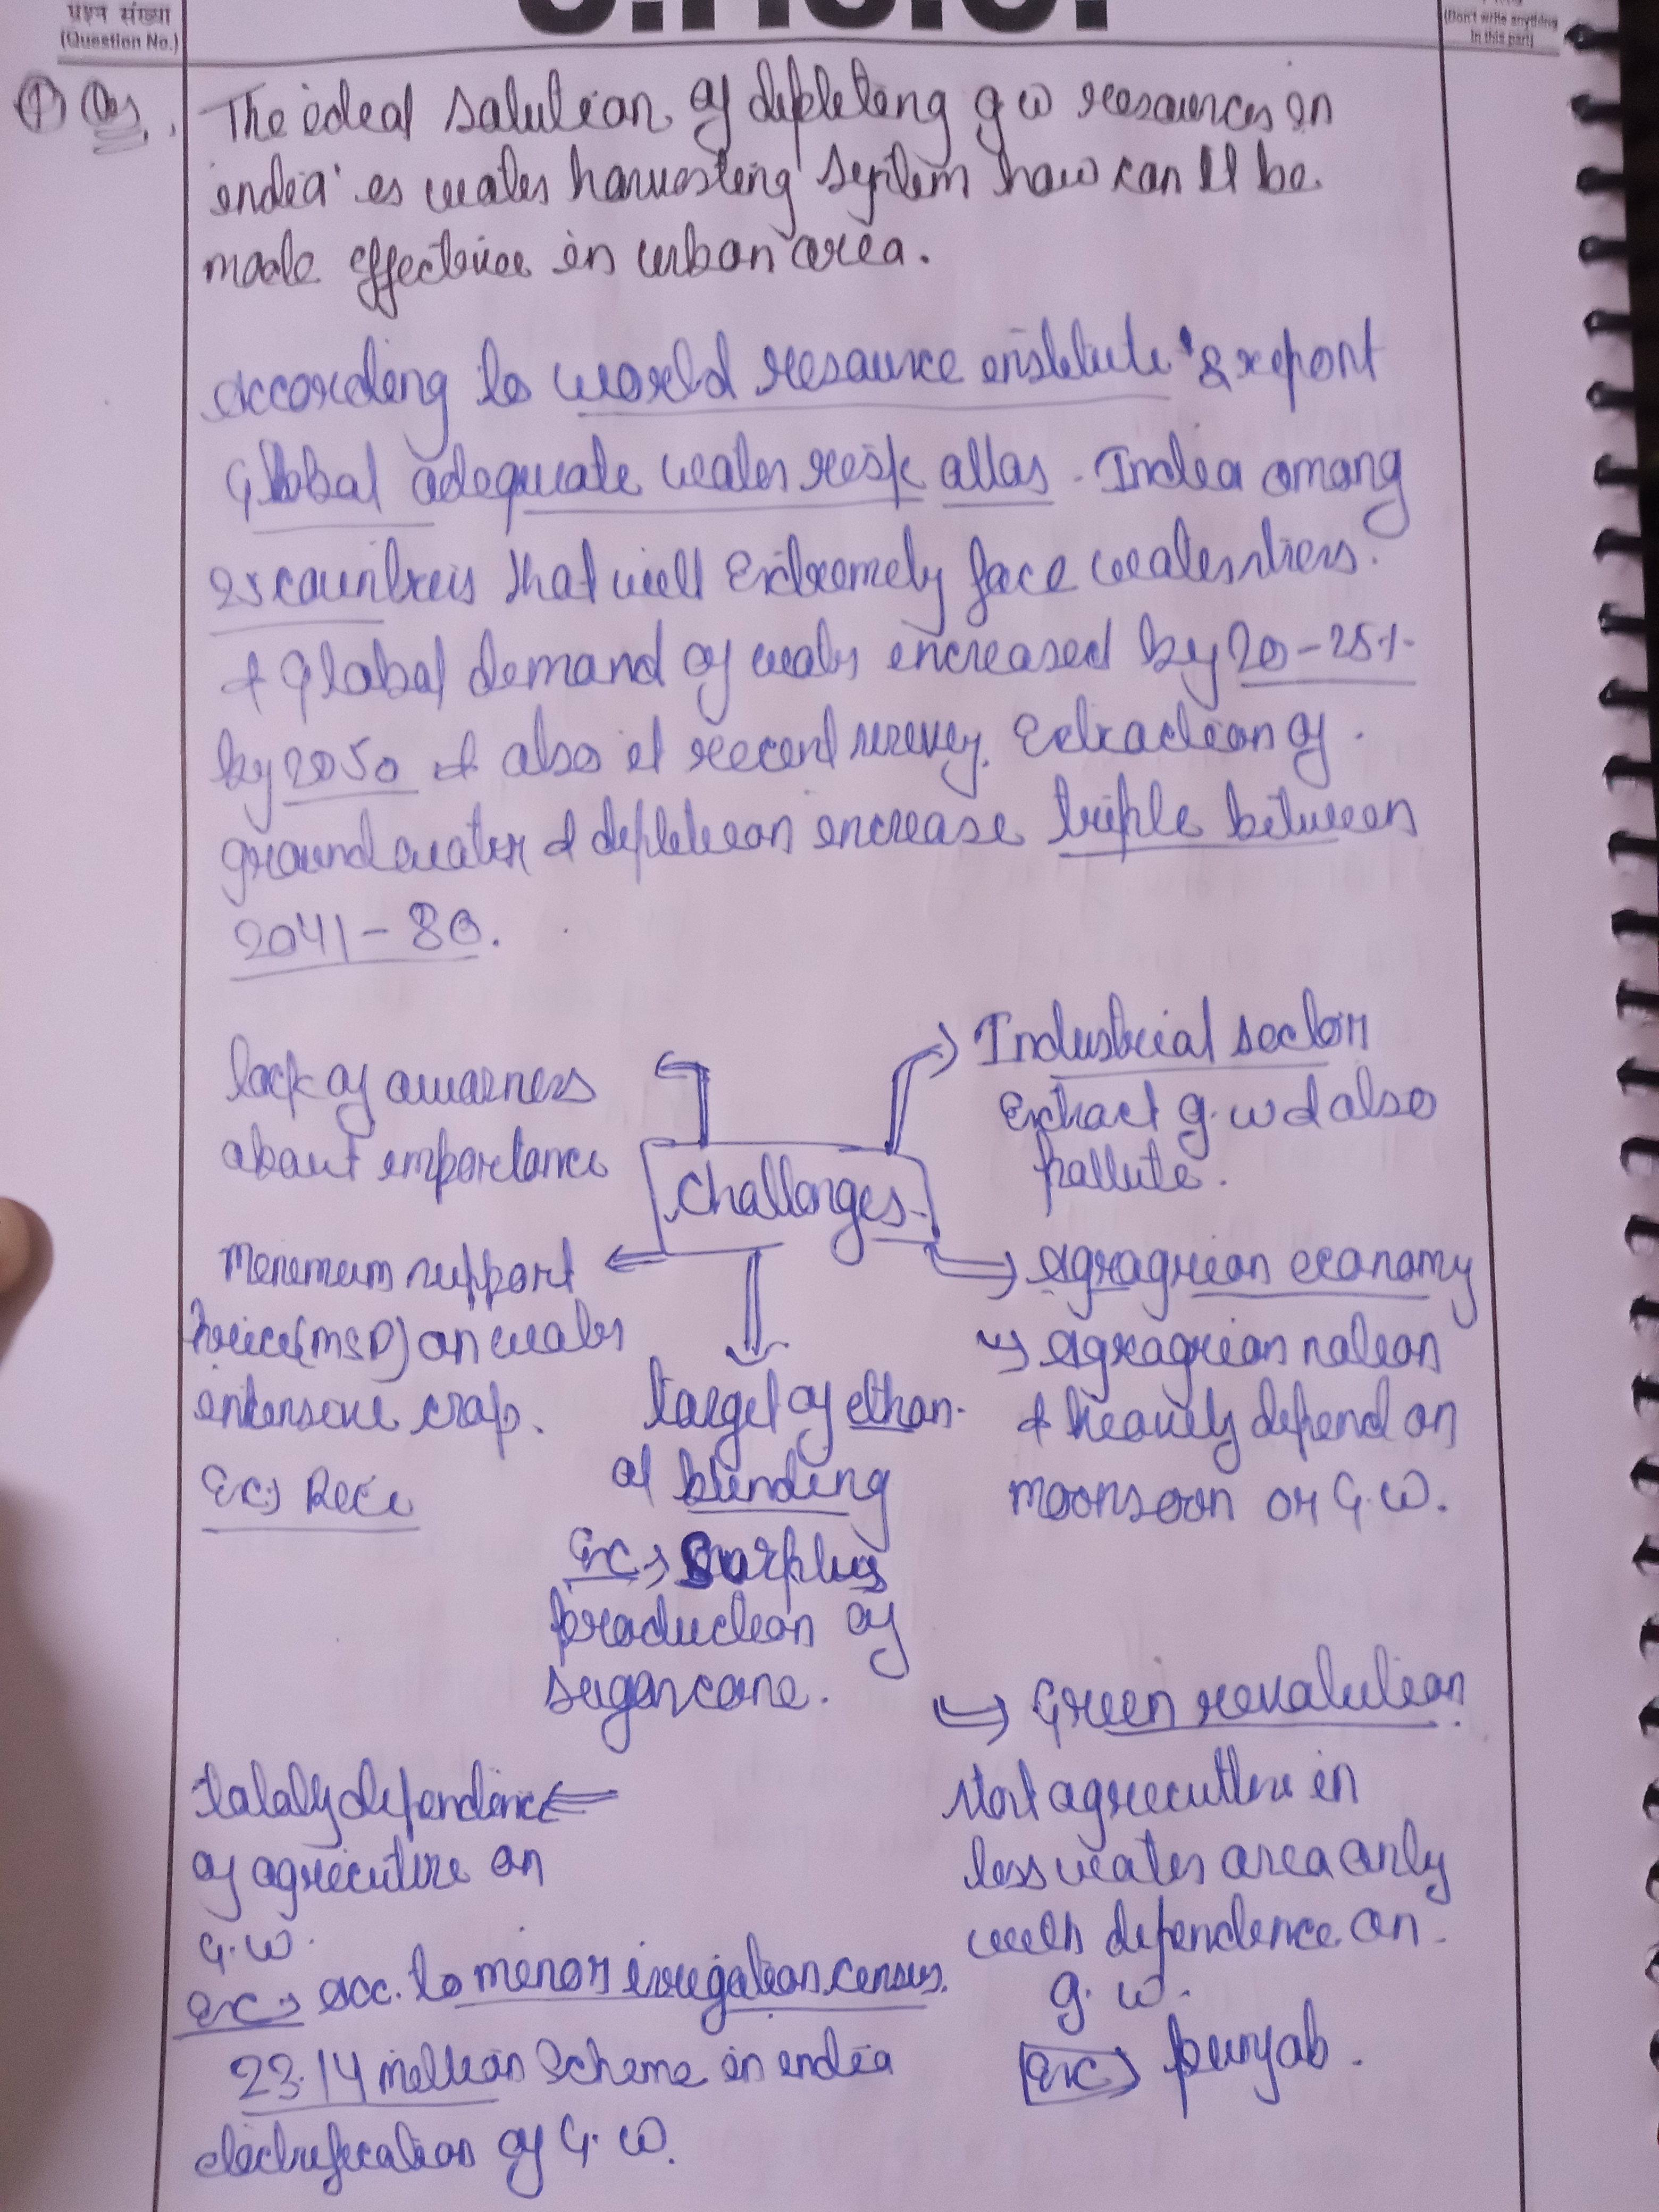 प्रश्न संख्या
(Question No.)
(Don't write anything
in this part)
① Ques.
The ideal solution of depleting g w resources in
india' is water harvesting system how can it be
made effective in urban area.
According to world resource institute's report
Global adequate water risk atlas. India among
25 countreis that will Extremely face water stress.
& Global demand of water increased by 20-25%
by 2050 & also it recent survey. Extraction of
groundwater & depletion increase triple between
2041-80.
Challenges
lack of awarness
about importance
Industrial sector
Extract g.w & also
pollute.
Minimum support
price(MSP) on water
intensive crop.
Ex:→ Rice
Target of ethan-
ol blinding
Ex:→ Surplus
production of
sugarcane.
Agragrian economy
↳ Agragrian nation
& heavily depend on
moonsoon or G.W.
Green revolution
in
less water area only
with dependence on
g.w.
Ex:→ punjab.
Totally dependence
of on
G.W.
Ex:→ Acc. to minor irrigation census.
23.14 million Scheme in india
electrification of G.W.